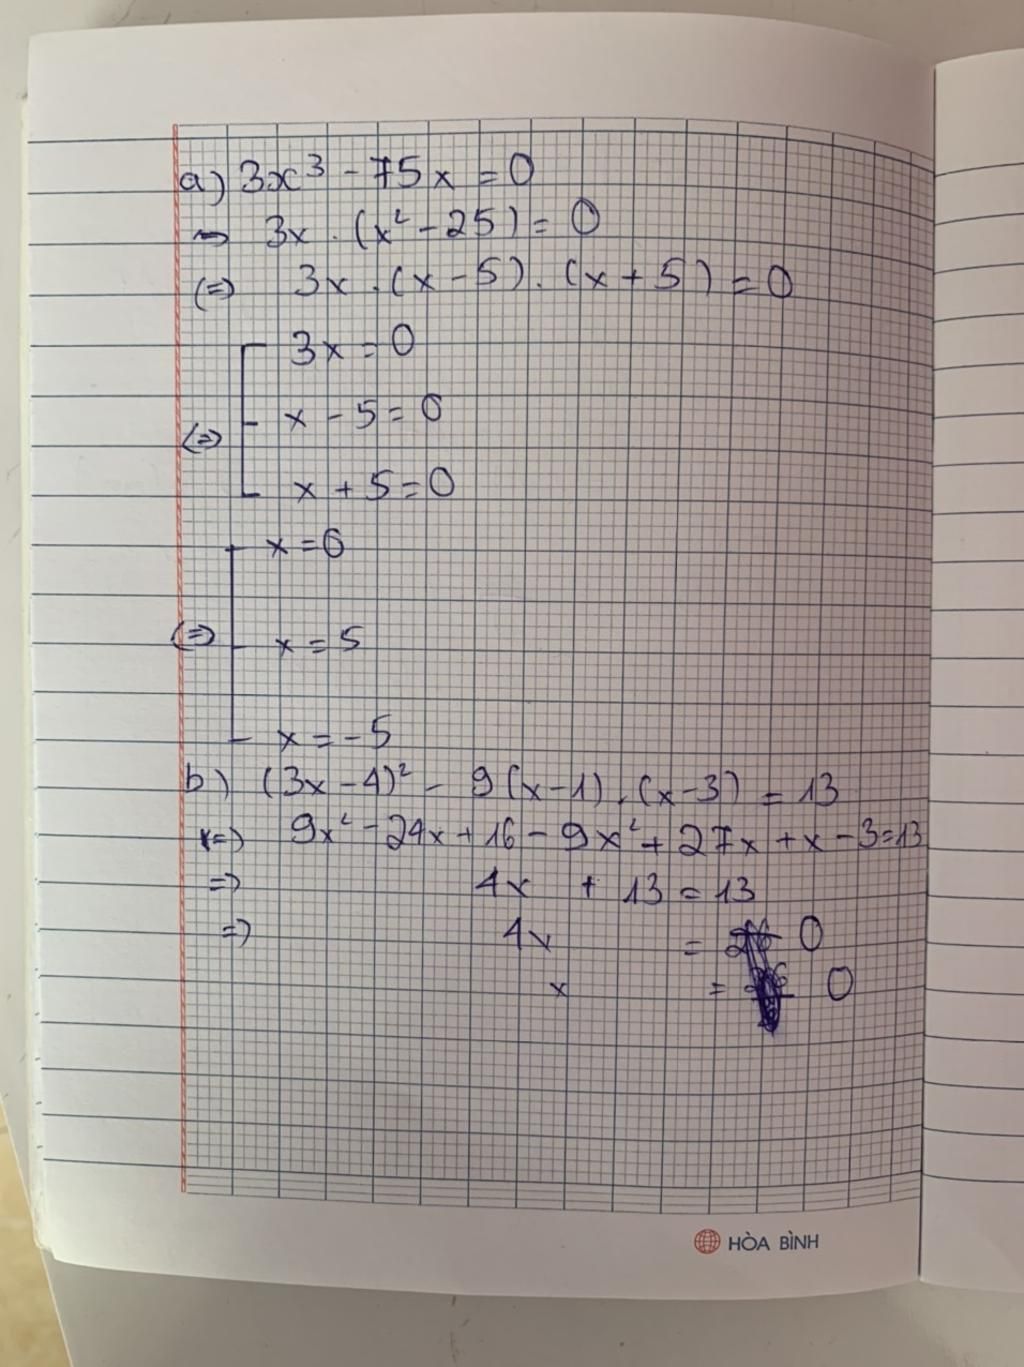 a) 3x³ - 75x = 0
⇔ 3x . (x² - 25) = 0
(⇒) 3x . (x - 5) . (x + 5) = 0
3x = 0
(⇒) x - 5 = 0
x + 5 = 0
x = 0
(⇒) x = 5
x = -5
b) (3x - 4)² - 9(x - 1) . (x - 3) = 13
(=) 9x² - 24x + 16 - 9x² + 27x + x - 3 = 13
=) 4x + 13 = 13
=) 4x = 0
x = 0
HÒA BÌNH